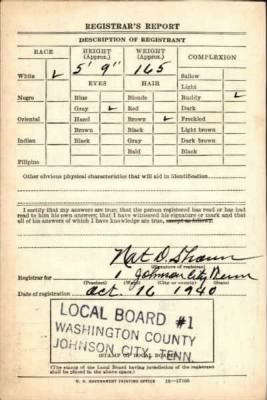 REGISTRAR'S REPORT
DESCRIPTION OF REGISTRANT
RACE HEIGHT (Approx.) WEIGHT (Approx.) COMPLEXION
5' 9" 165
White ✓ Sallow
EYES HAIR Light
Negro Blue Blonde Ruddy ✓
Gray ✓ Red Dark
Oriental Hazel Brown ✓ Freckled
Brown Black Light brown
Indian Black Gray Dark brown
Bald Black
Filipino
Other obvious physical characteristics that will aid in identification
I certify that my answers are true; that the person registered has read or has had
read to him his own answers; that I have witnessed his signature or mark and that
all of his answers of which I have knowledge are true, except as follows:
Nat D.
(Signature of registrar)
Registrar for 1 Johnson City Tenn
(Precinct) (Ward) (City or county) (State)
Date of registration Oct. 16 1940
LOCAL BOARD #1
WASHINGTON COUNTY
JOHNSON CITY, TENN.
(STAMP OF LOCAL BOARD)
(The stamp of the Local Board having jurisdiction of the registrant
shall be placed in the above space.)
U. S. GOVERNMENT PRINTING OFFICE 16—17105